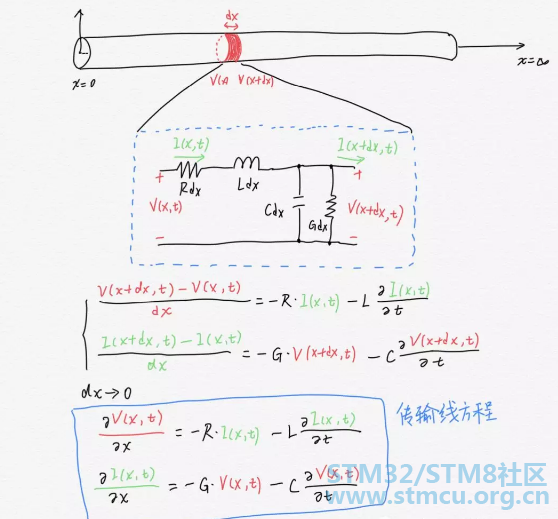 dx
x=0
x=∞
V(x) V(x+dx)
I(x,t)
I(x+dx,t)
+
Rdx
Ldx
+
V(x,t)
Cdx
Gdx
V(x+dx,t)
-
-
V(x+dx,t)-V(x,t)/dx = -R·I(x,t) - L ∂I(x,t)/∂t
I(x+dx,t)-I(x,t)/dx = -G·V(x+dx,t) - C ∂V(x+dx,t)/∂t
dx→0
∂V(x,t)/∂x = -R·I(x,t) - L ∂I(x,t)/∂t
传输线方程
∂I(x,t)/∂x = -G·V(x,t) - C ∂V(x,t)/∂t
STM32/STM8社区
www.stmcu.org.cn